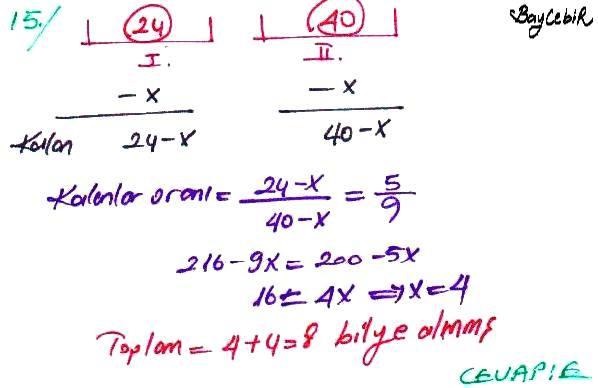 15./ 24 40 BaycebiR
I. II.
-x -x
Kalan 24-x 40-x
Kalanlar oranı = 24-x / 40-x = 5/9
216-9x = 200-5x
16 = 4x ⇒ x=4
Toplam = 4+4=8 bilye alınmış
CEVAP:E